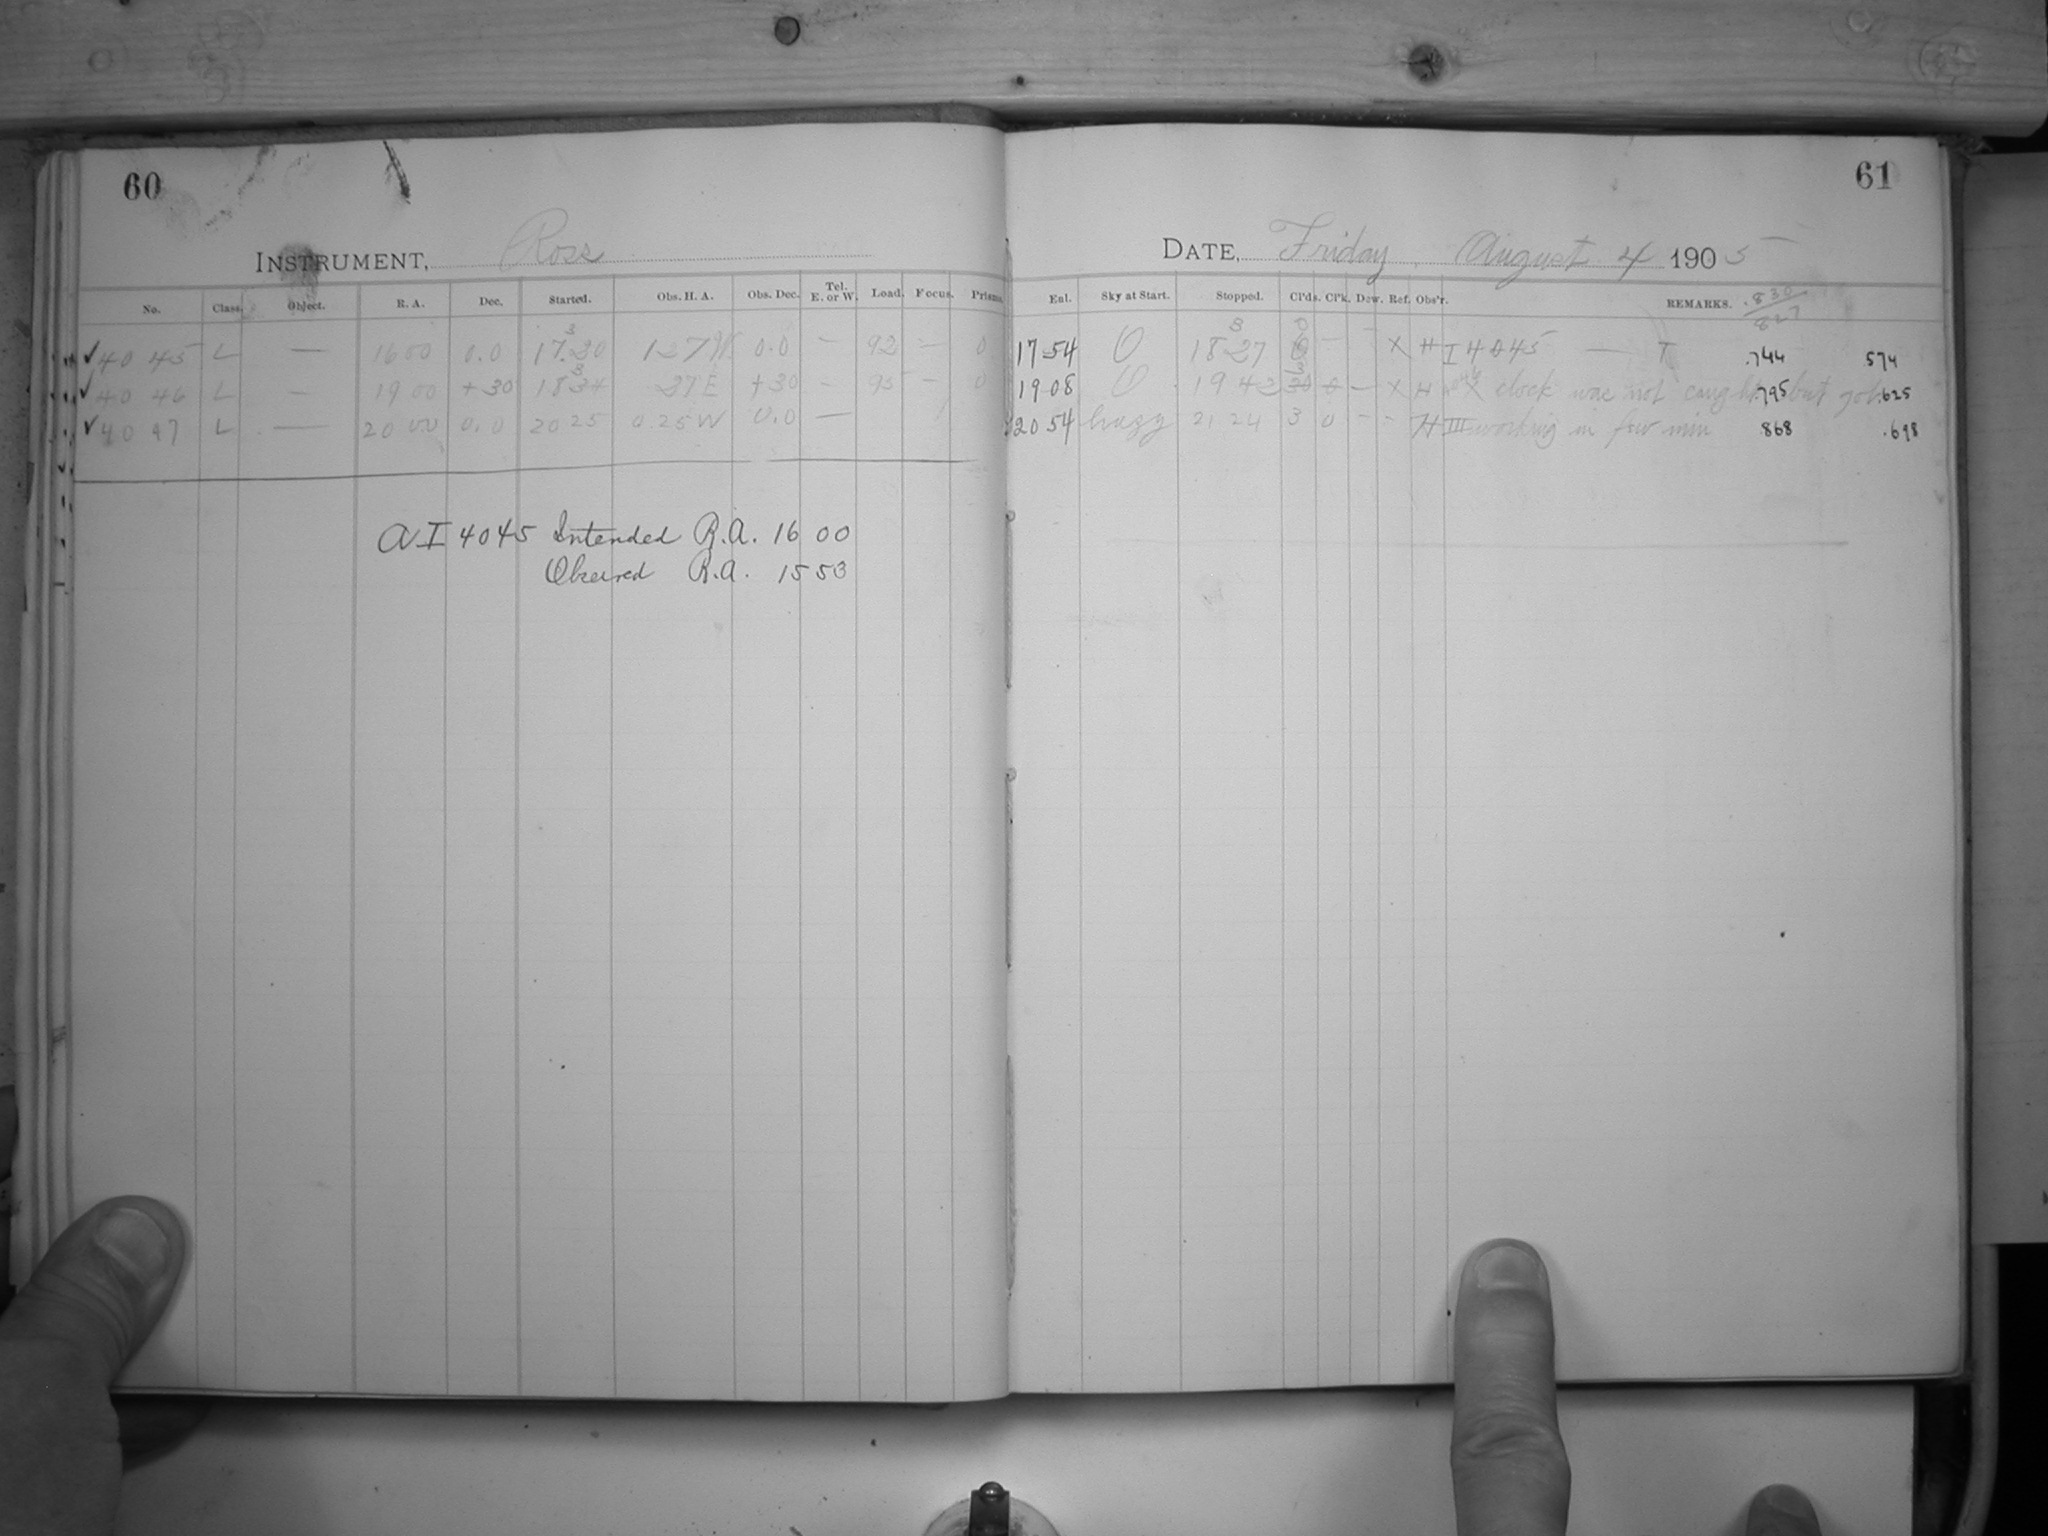 60
INSTRUMENT, Ross
No. Class. Object. R. A. Dec. Started. Obs. H. A. Obs. Dec. Tel. E. or W. Load. Focus. Prisms.
✓ 40 45 L — 16 00 0.0 17.20 3 1 27 W 0.0 — 92 — 0
✓ 40 46 L — 19 00 +30 18 34 3 27 E +30 - 95 - 0
✓ 40 47 L — 20 00 0.0 20 25 0.25 W 0.0 —
AI 4045 Intended R.A. 16 00
Observed R.A. 15 53
61
DATE, Friday, August 4 1905
Eal. Sky at Start. Stopped. Cl'ds. Cl'k. Dew. Ref. Obs'r. REMARKS. .830
827
17 54 0 18 27 3 0 — - X H I 4045 — T .744 574
19 08 0 19 42 0 — X H clock was not caught .795 but got .625
20 54 hazy 21 24 3 0 - - H III working in few min .868 .698